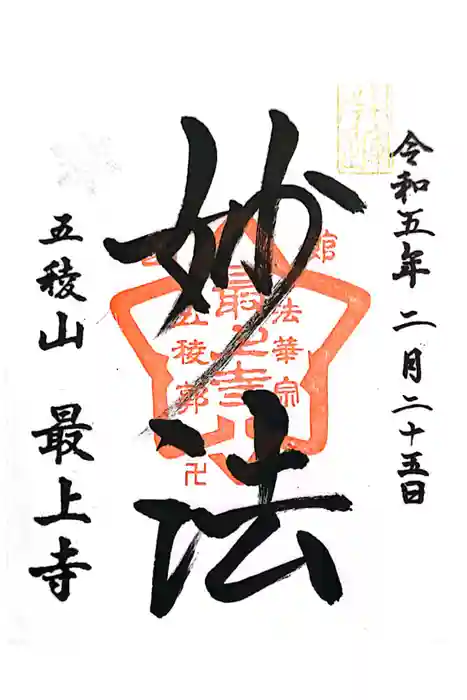 令和五年二月二十五日
妙法
館
法華宗
最上寺
五稜郭
卍
五稜山 最上寺